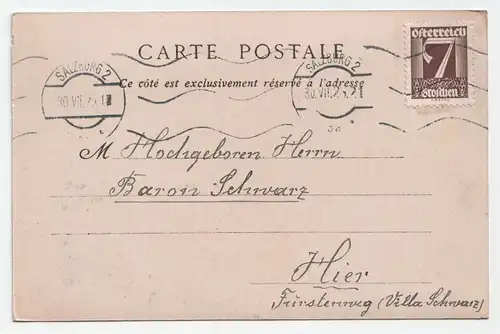 CARTE POSTALE
Österreich
7
Groschen
SALZBURG 2
30.VII.25
SALZBURG 2
30.VII.25
Ce côté est exclusivement réservé à l'adresse
M Hochgeboren Herrn
Baron Schwarz
Hier
Fürstenweg (Villa Schwarz)